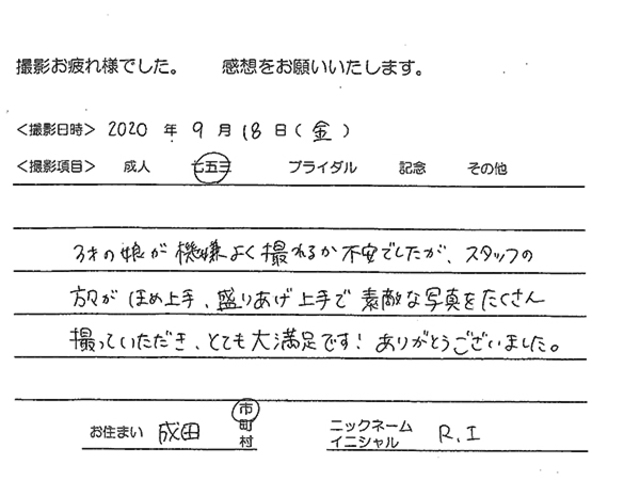 撮影お疲れ様でした。 感想をお願いいたします。
<撮影日時> 2020 年 9 月 18 日 ( 金 )
<撮影項目> 成人 七五三 ブライダル 記念 その他
3才の娘が機嫌よく撮れるか不安でしたが、スタッフの
方々がほめ上手、盛りあげ上手で素敵な写真をたくさん
撮っていただき、とても大満足です! ありがとうございました。
お住まい 成田 市
町
村
ニックネーム
イニシャル R.I